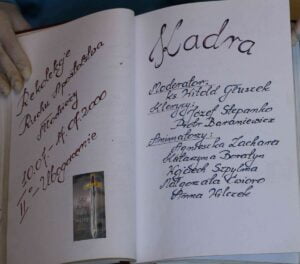 Rekolekcje
Ruchu Apostolstwa
Młodzieży
10.07-14.07.2000
IIº Ubogacenie
Kadra
Moderator:
ks Witold Głuszek
Klerycy:
Józef Stepanko
Piotr Baraniewicz
Animatorzy:
Agnieszka Zachara
Katarzyna
Wojciech Szpytma
Małgorzata
Anna Wilczek